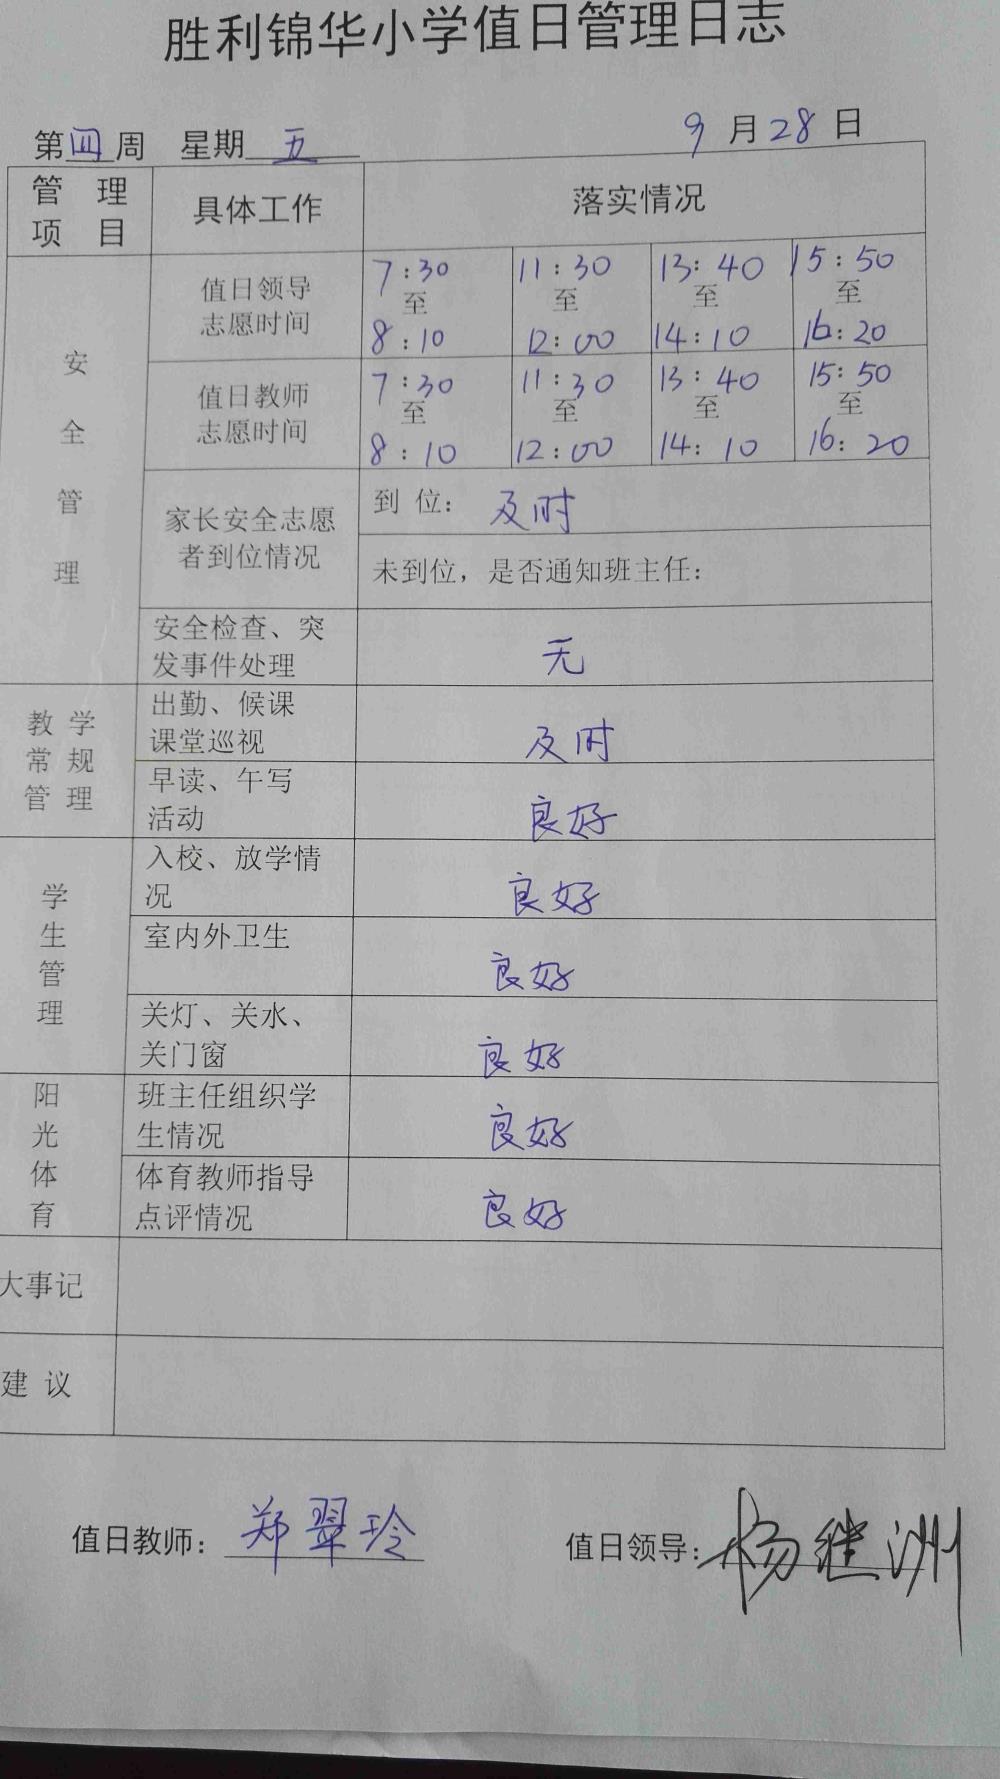 胜利锦华小学值日管理日志
第四周 星期五 9月28日
管理项目 具体工作 落实情况
安全管理
值日领导志愿时间
7:30至8:10 11:30至12:00 13:40至14:10 15:50至16:20
值日教师志愿时间
7:30至8:10 11:30至12:00 13:40至14:10 15:50至16:20
家长安全志愿者到位情况
到位：及时
未到位，是否通知班主任：
安全检查、突发事件处理 无
教学常规管理
出勤、候课课堂巡视 及时
早读、午写活动 良好
学生管理
入校、放学情况 良好
室内外卫生 良好
关灯、关水、关门窗 良好
阳光体育
班主任组织学生情况 良好
体育教师指导点评情况 良好
大事记
建议
值日教师：郑翠玲 值日领导：杨继洲